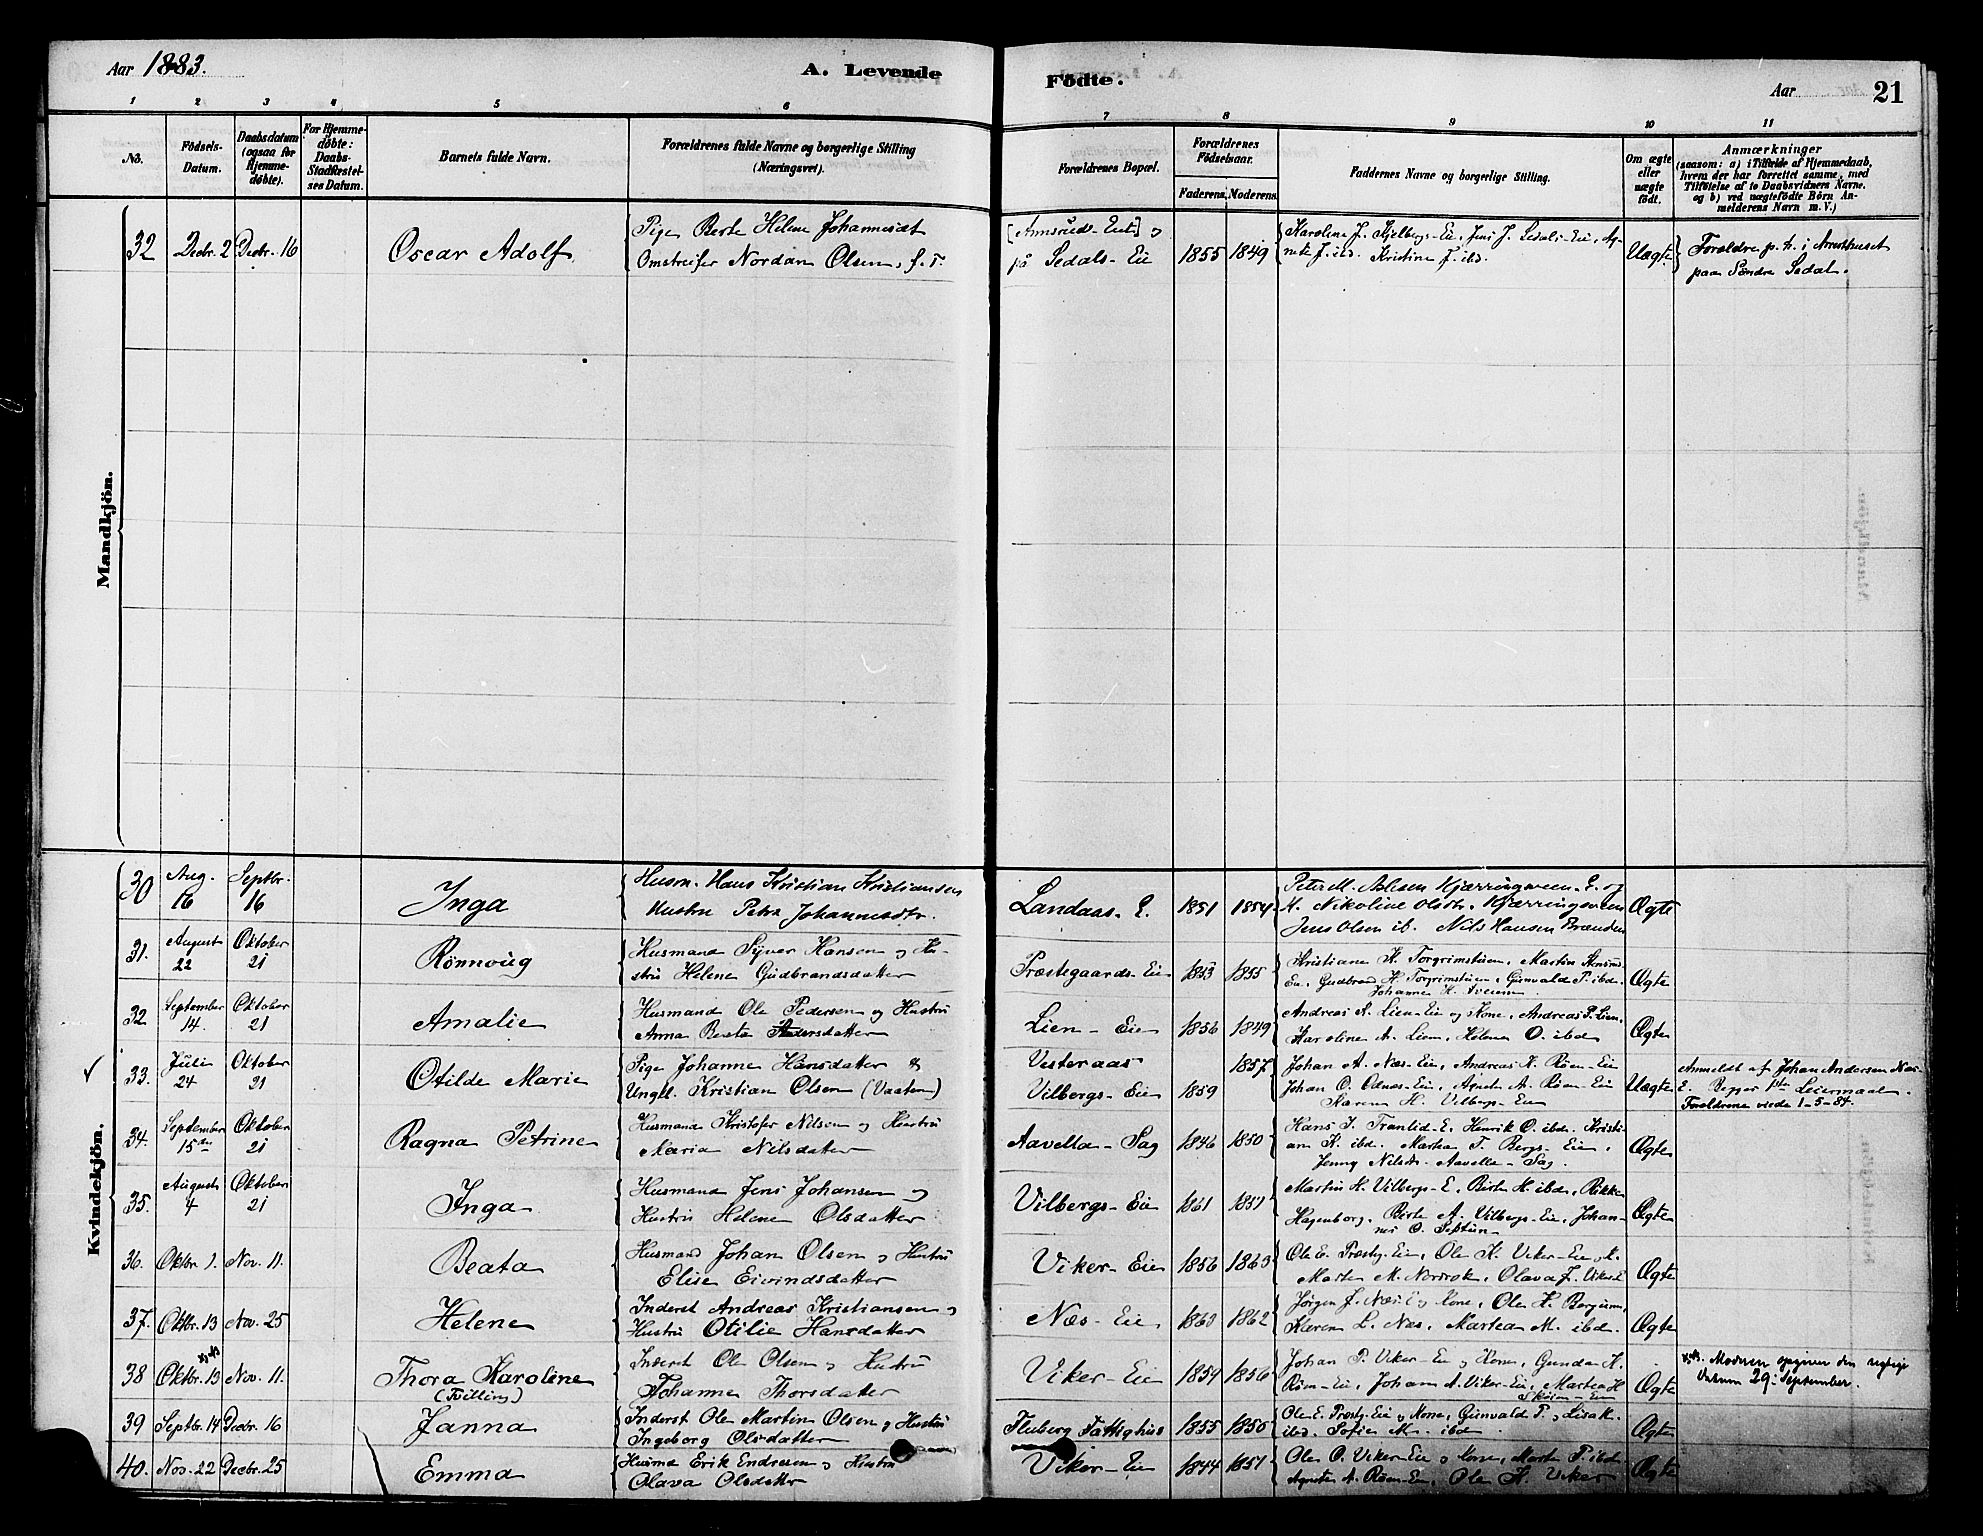 Aar 1883.
A. Levende Födte.
Aar
21
1 2 3 4 5 6 7 8 9 10 11
No.
Födsels-
Datum.
Daabsdatum
(ogsaa for
Hjemme-
döbte).
For Hjemme-
döbte:
Daabs-
Stadfæstel-
ses Datum.
Barnets fulde Navn.
Forældrenes fulde Navne og borgerlige Stilling
(Næringsvei).
Forældrenes Bopæl.
Forældrenes
Födselsaar.
Faderens. Moderens.
Faddernes Navne og borgerlige Stilling.
Om ægte
eller
uægte
födt.
Anmærkninger
(saasom: a) i Tilfælde af Hjemmedaab,
hvem der har forrettet samme, med
Tilföielse af to Daabsvidners Navne.
og b) ved uægtefödte Börn An-
melderens Navn m. V.)
Mandkjön.
32 Decbr. 2 Decbr. 16 Oscar Adolf
Pige Berte Helene Johannesdt
Omstreifer Nordan Olsen, f. T.
og
på Sedals-Eie
1855 1849
Karoline J. Kjelbergs-Eie, Jens J. Sedals-Eie, Ag-
nete J. ibd. Kristine J. ibd.
Uægte
Forældre p. t. i Arresthuset
paa Söndre Sedal.
Kvindekjön.
30 Aug. 16 Septbr. 16 Inga
Husm. Hans Kristian Kristiansen
Hustru Petra Johannesdtr.
Landaas-E. 1851 1854
Peter M. Aslesen Kjærringsveen-E. og
K. Nikoline Olsdt. Kjærringsveen
Jens Olsen ib. Nils Hansen Brænden
Ægte
31. August 22 Oktober 21 Rönnoug
Husmand Syver Hansen og Hu-
stru Helene Gudbrandsdatter
Præstegaards-Eie 1853 1855
Kristiane K. Torgrimstuen, Martin
Eie, Gudbrand H. Torgrimstuen, Gunvald P. ibd.
Johanne H.
Ægte
32 September 14. Oktober 21 Amalie
Husmand Ole Pedersen og Hustru
Anna Beate Andersdatter
Lien-Eie 1856 1849
Andreas A. Lien-Eie og Kone, Andreas P. Lien,
Karoline A. Lien, Helene O. ibd.
Ægte
33. Juli 24 Oktober 21 Otilde Marie
Pige Johanne Hansdatter &
Ungk. Kristian Olsen (Vaaten)
Vesteraas
Vilbergs-Eie
1859 1857
Johan A. Næs-Eie, Andreas K. Röen-Eie
Johan O. Odnæs-Eie, Agnete A. Röen-Eie
Karen H. Vilbergs-Eie
Uægte
Anmeldt af Johan Andersen Næs-
E. Begges 1ste Leiermaal.
Forældrene viede 1-5-84.
34. September 15de Oktober 21 Ragna Petrine
Husmand Kristofer Nilsen og Hustru
Maria Nilsdatter
Aavella-Sag 1846 1850
Hans J. Tranlid-E. Henrik O. ibd. Kristi-
an K. ibd. Marthea T. Bergs-Eie,
Jenny Nilsdt. Aavella-Sag.
Ægte
35. August 4 Oktober 21 Inga
Husmand Jens Johansen og
Hustru Helene Olsdatter
Vilbergs-Eie 1861 1851
Martin H. Vilbergs-E. Birte H. ibd., Rikke
Hagenborg, Birte A. Vilbergs-Eie, Johan-
nes O.
Ægte
36. Oktbr. 1. Nov. 11. Beata
Husmand Johan Olsen og Hustru
Elise Eivindsdatter
Viker-Eie 1856 1863
Ole E. Præstg. Eie, Ole K. Viker-Eie, K.
Marte M. Nordrok, Olava J. Viker-E
Ægte
37. Oktbr. 13 Nov. 25 Helene
Inderst Andreas Kristiansen og
Hustru Otilie Hansdatter
Næs-Eie 1863 1862
Jörgen J. Næs-E og Kone, Ole H. Bergum,
Karen L. Næs, Marthea M. ibd.
Ægte
38 Oktbr. 13 Nov. 11. Thora Karoline
(Tvilling)
Inderst Ole Olsen og Hustru
Johanne Thorsdatter
Viker-Eie 1859 1856
Johan P. Viker-Eie og Kone, Gunda K.
Röen-Eie, Johan A. Viker-Eie, Marthea H
Ægte
Moderen opgiver den rigtige
Datum 29. September.
39 Septbr. 14 Decbr. 16 Janna
Inderst Ole Martin Olsen og Hustru
Ingeborg Olsdatter
Fluberg Fattighus 1855 1850
Ole E. Præstg. Eie og Kone, Gunvald P. og Lisa K.
ibd. Sofie M. ibd.
Ægte
40. Nov. 22 Decbr. 25 Emma
Husmd Erik Endresen og Hustru
Olava Olsdatter
Viker-Eie 1844 1851
Ole O. Viker-Eie og Kone, Marte P. ibd.
Agnethe A. Röen-Eie, Ole K. Viker
Ægte